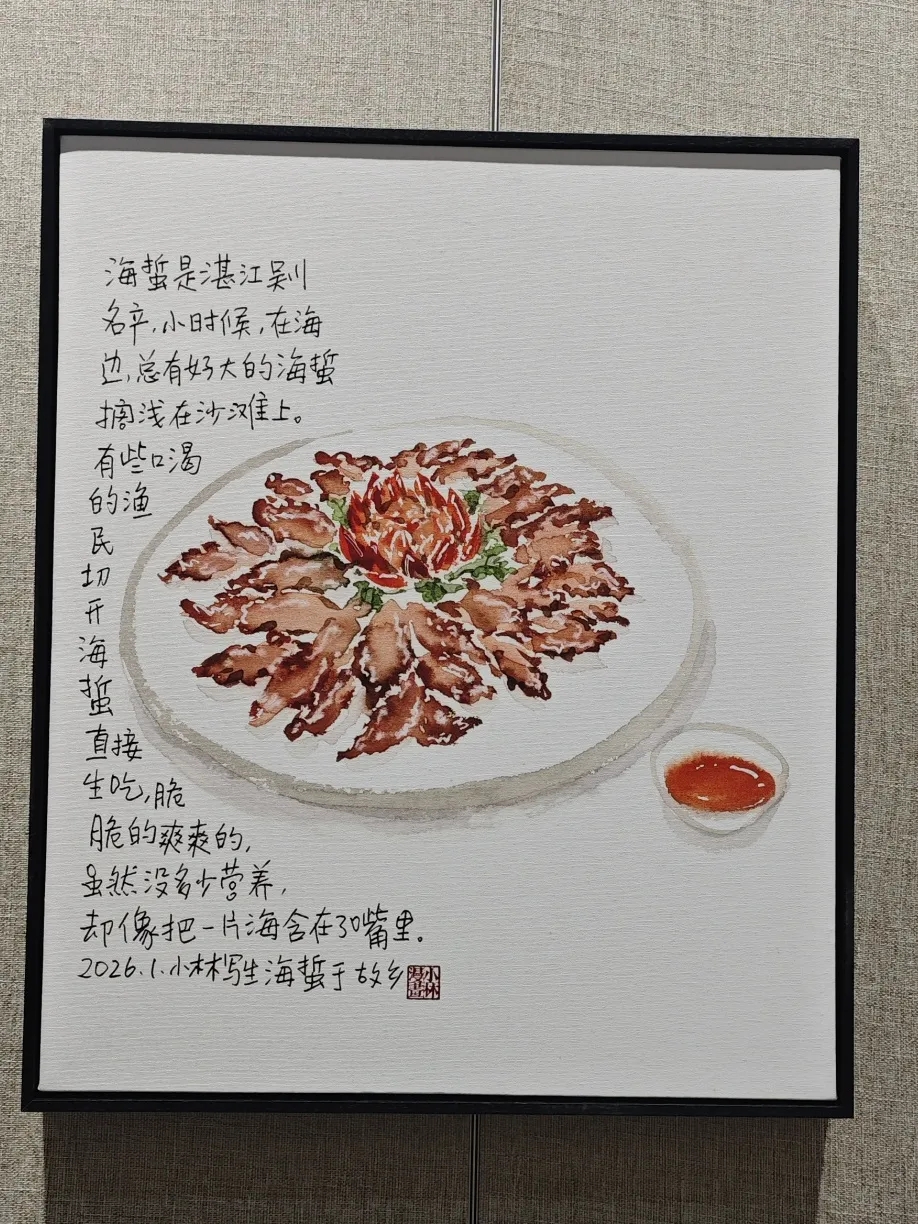 海蜇是湛江吴川
名产,小时候,在海
边,总有好大的海蜇
搁浅在沙滩上。
有些口渴
的渔
民
切
开
海
蜇
直接
生吃,脆
脆的爽爽的,
虽然没多少营养,
却像把一片海含在了嘴里。
2026.1.小林写生海蜇于故乡
小林
漫画